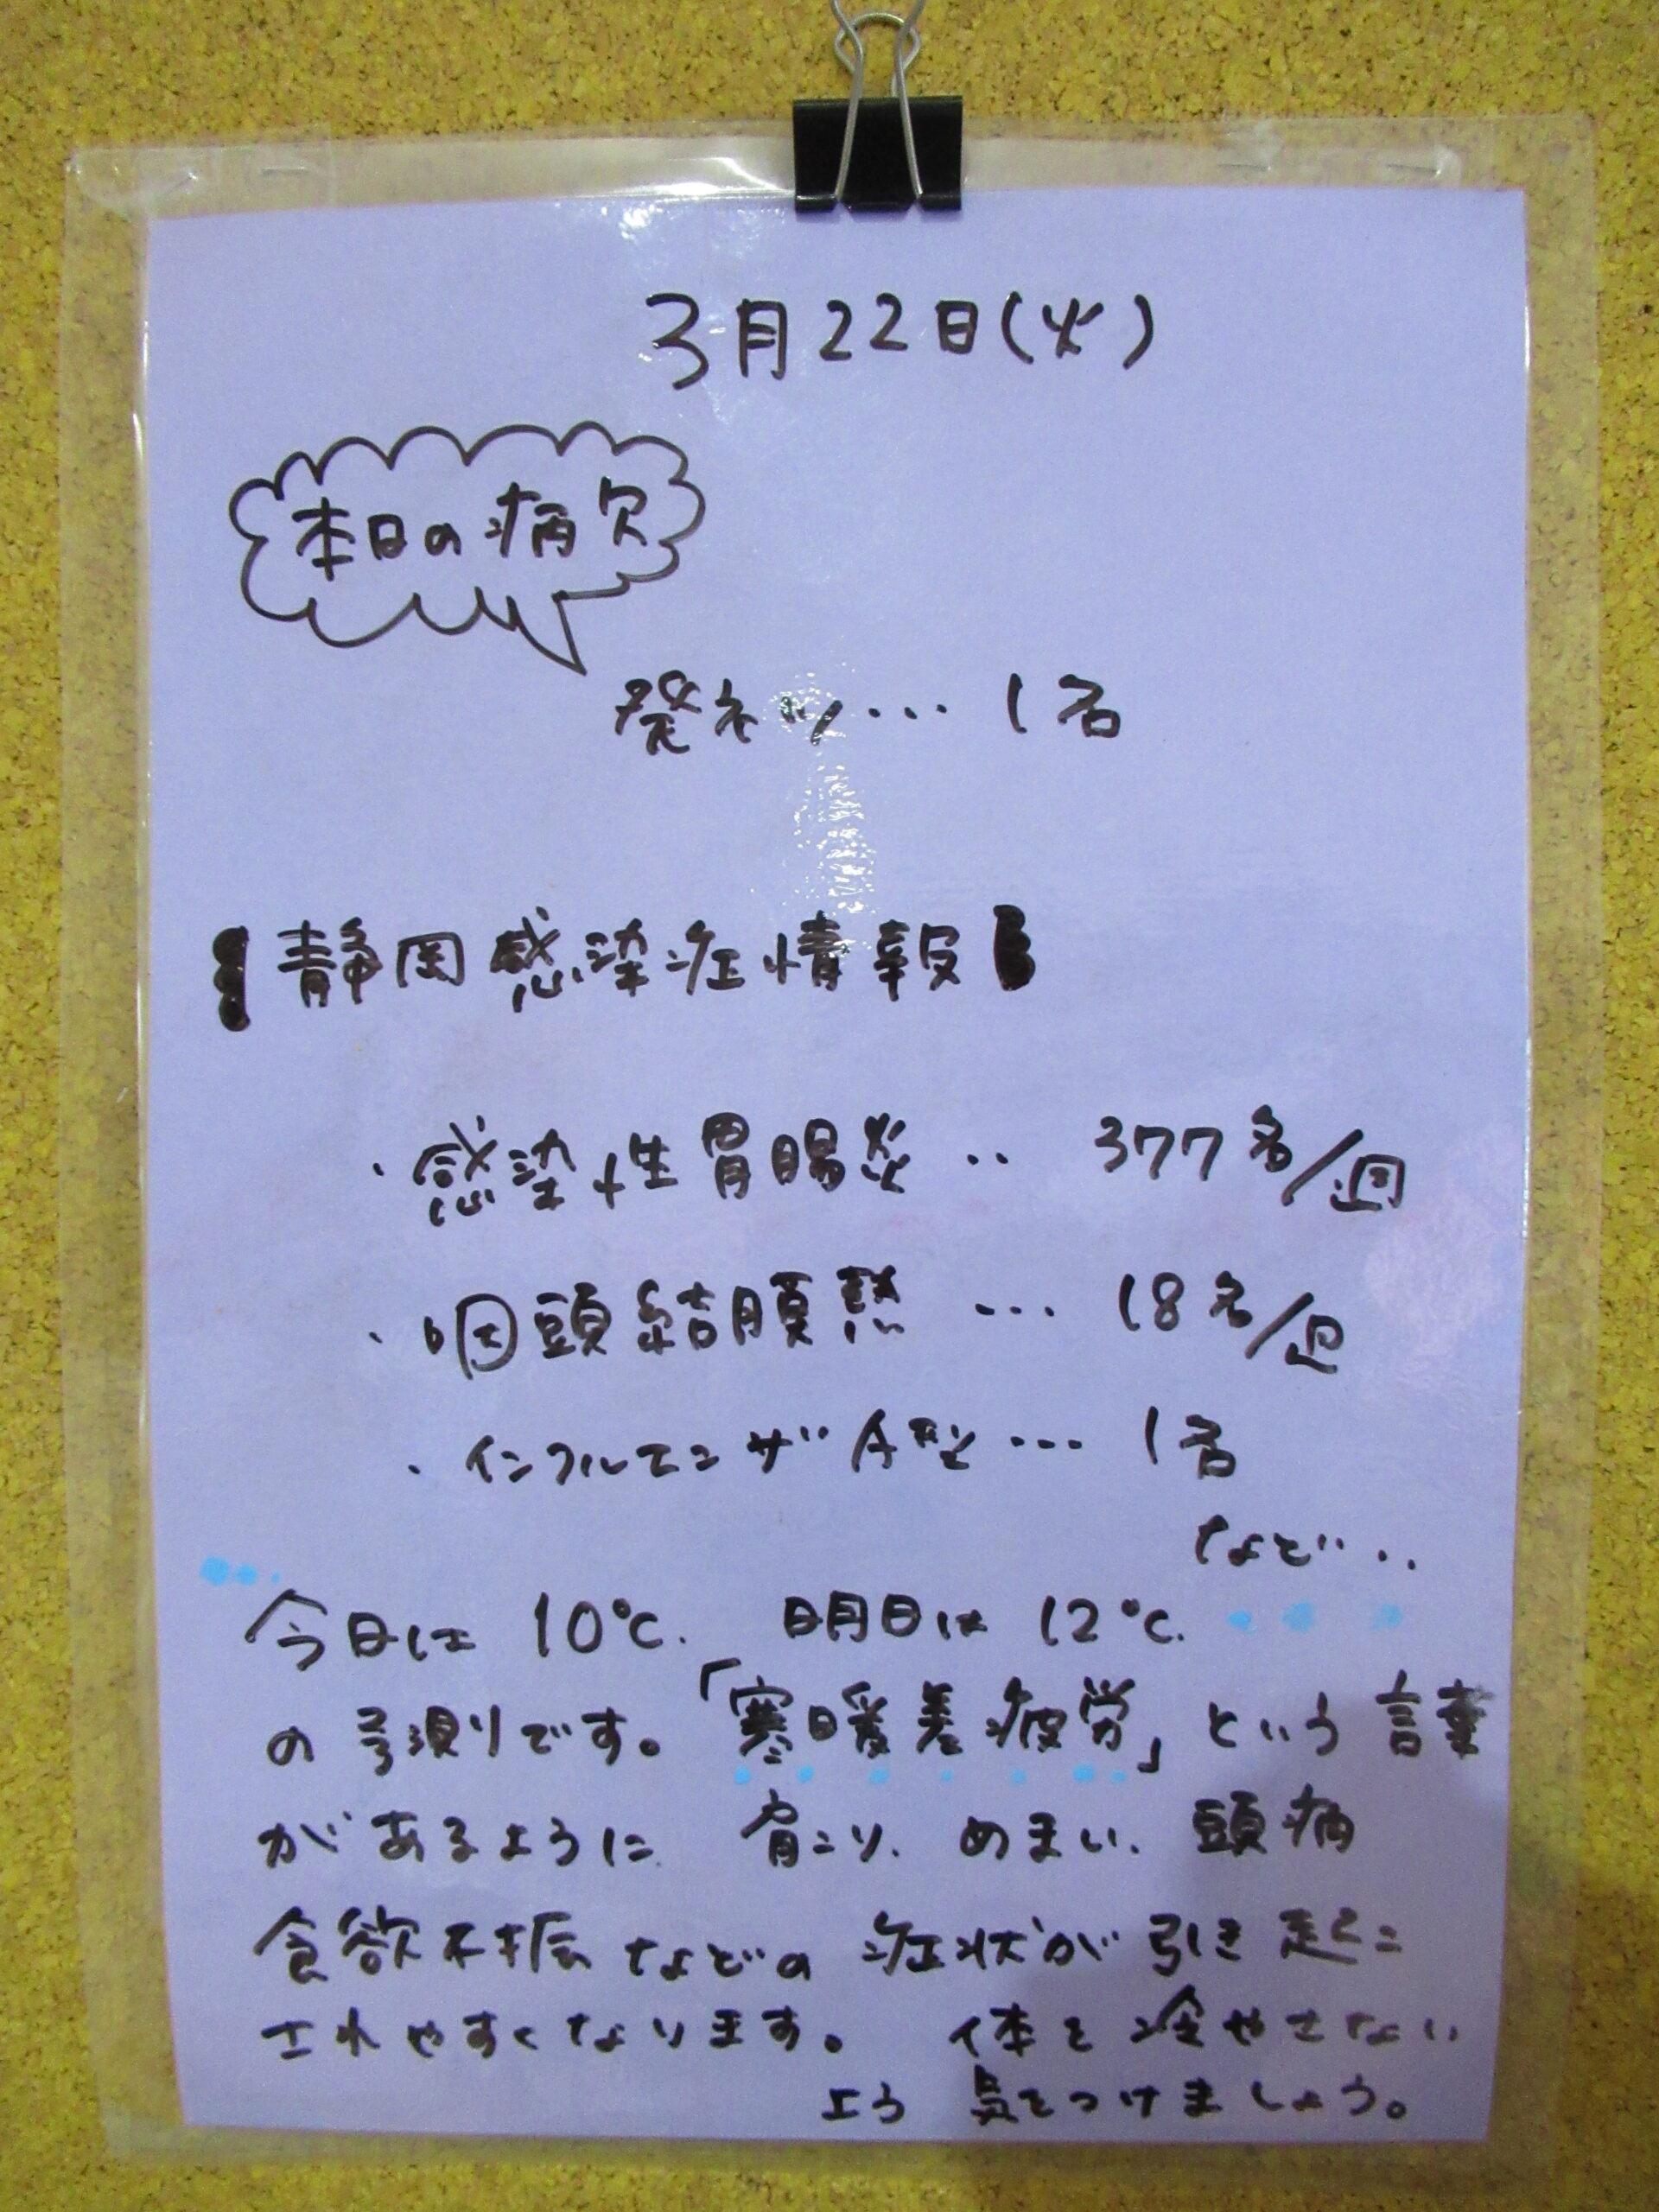 3月22日(火)
本日の病欠
発ネツ… 1名
【静岡感染症情報】
・感染性胃腸炎‥ 377名/週
・咽頭結膜熱 … 18名/週
・インフルエンザA型… 1名
など‥
今日は 10℃. 明日は 12℃.
の予測です。「寒暖差疲労」という言葉
があるように 肩こり、めまい、頭痛
食欲不振などの 症状が引き起こ
されやすくなります。 体を冷やさない
よう 気をつけましょう。